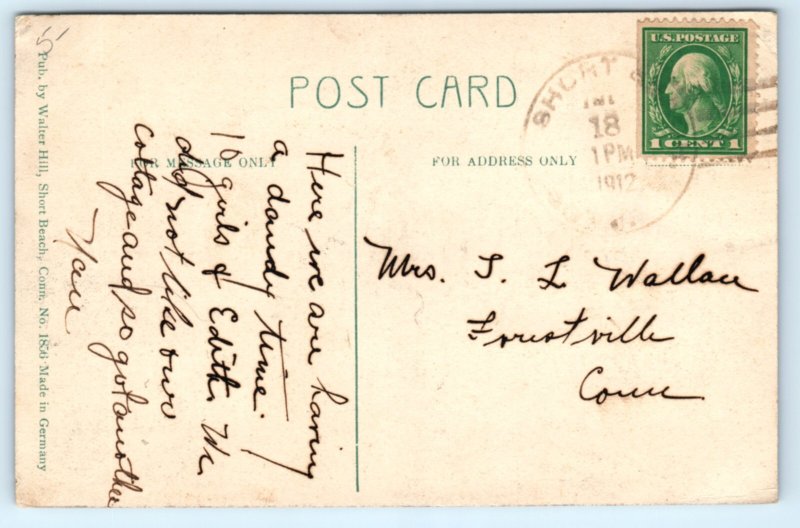 POST CARD
FOR MESSAGE ONLY
FOR ADDRESS ONLY
Pub. by Walter Hill, Short Beach, Conn. No. 1856 Made in Germany
5
Here we are having
a dandy time.
10 girls & Edith. We
did not like our
cottage and so got another
U.S. POSTAGE
1 CENT 1
SHORT
18
1 PM
1912
Mrs. S. L. Wallace
Forestville
Conn